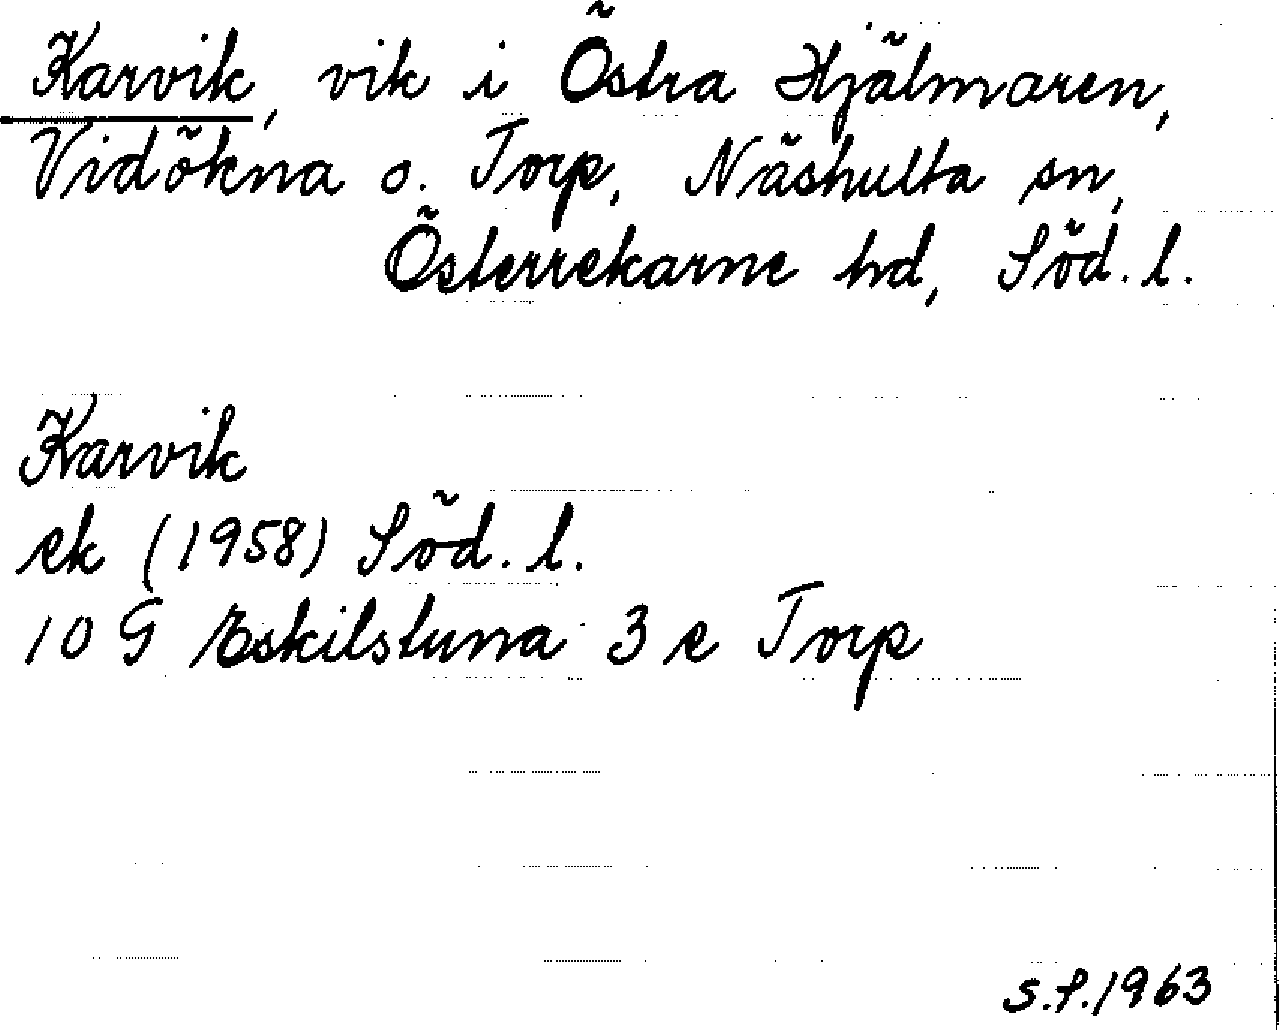 Karvik, vik i Östra Hjälmaren,
Vidökna o. Torp, Näshulta sn,
Österrekarne hd, Söd. l.
Karvik
ek (1958) Söd. l.
10 G Eskilstuna 3 e Torp
S.P. 1963